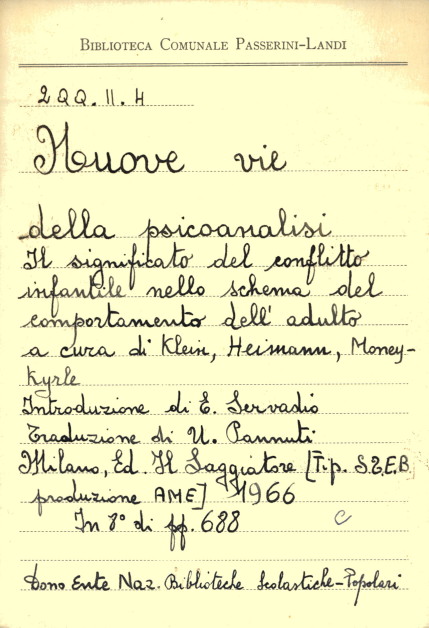 BIBLIOTECA COMUNALE PASSERINI-LANDI
2QQ. II. 4
Nuove vie
della psicoanalisi
Il significato del conflitto
infantile nello schema del
comportamento dell' adulto
a cura di Klein, Heimann, Money-
Kyrle
Introduzione di E. Servadio
Traduzione di U. Pannuti
Milano, Ed. Il Saggiatore [Tip. S.T.E.B.
produzione AME] 1966
In 8° di pp. 688 C
Dono Ente Naz. Biblioteche Scolastiche-Popolari